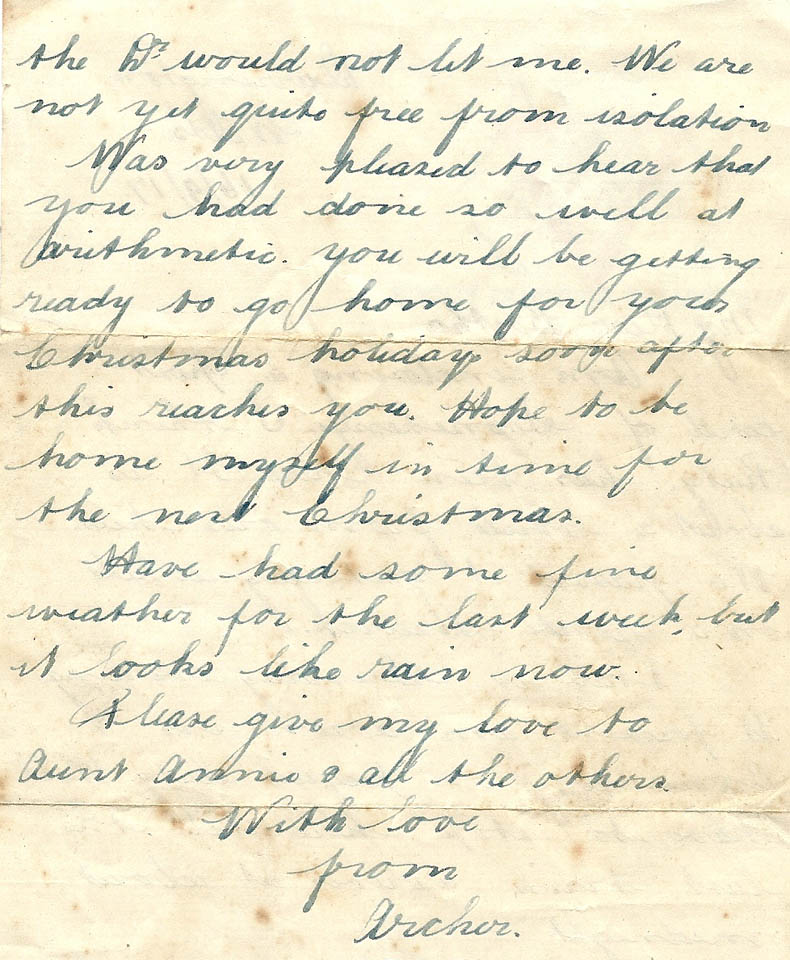 the Dr. would not let me. We are
not yet quite free from isolation
Was very pleased to hear that
you had done so well at
arithmetic. you will be getting
ready to go home for your
Christmas holidays soon after
this reaches you. Hope to be
home myself in time for
the next Christmas.
Have had some fine
weather for the last week, but
it looks like rain now.
Please give my love to
Aunt Annie & all the others.
With love
from
Archer.